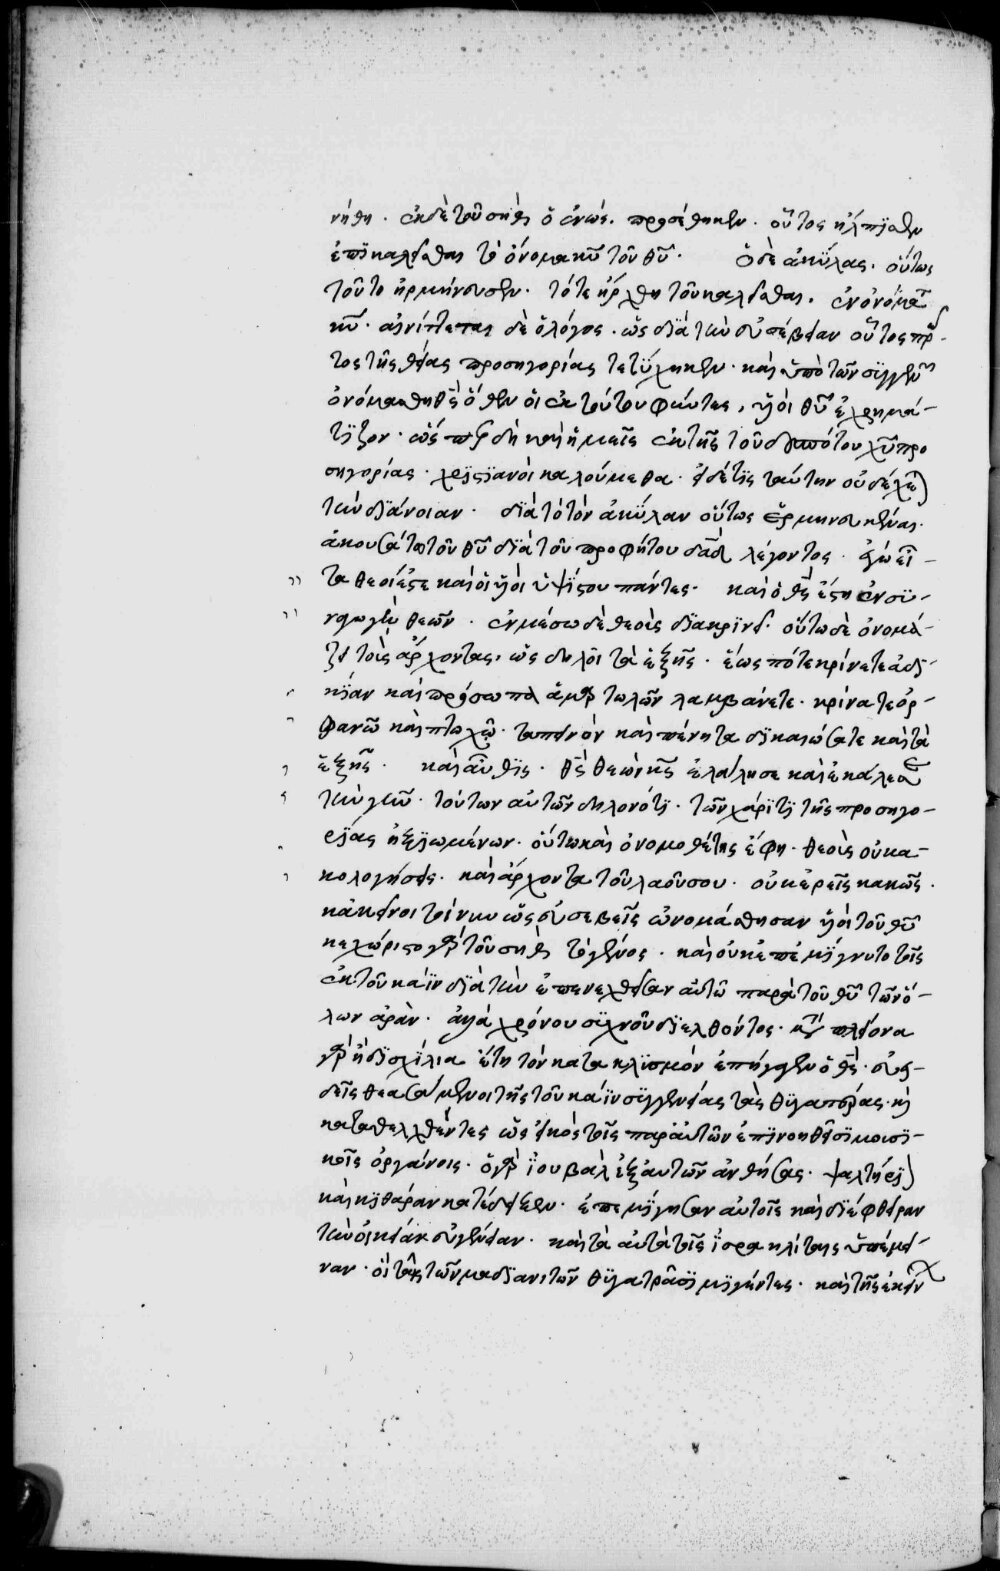 νήθη · ἐκ δὲ τοῦ σὴθ, ὁ ἐνώς. προσέθηκεν · οὗτος ἤλπϊσεν
ἐπϊκαλεῖσθαι τὸ ὄνομα κῦ τοῦ θῦ · ὁ δὲ ἀκύλας · οὕτως
τοῦτο ἡρμήνευσεν · τότε ἤρχθη τοῦ καλεῖσθαι. ἐν ὀνόματι
κῦ · αἰνίττεται δὲ ὁ λόγος · ὡς διὰ τὴν εὐσέβειαν οὗτος πρῶ-
τος τῆς θείας προσηγορίας τετύχηκεν · καὶ ὑπὸ τῶν συγγενῶν
ὀνομασθη θς ὅθεν οἱ ἐκ τούτου φύντες, υἱοὶ θῦ ἐχρημά-
τϊζον · ὥσπερ δὴ καὶ ἡμεῖς ἐκ τῆς τοῦ δεσπότου χῦ προ
σηγορίας · χριστϊανοὶ καλούμεθα · εἰ δέ τις ταύτην οὐ δέχεται
τὴν διάνοιαν · διὰ τὸ τὸν ἀκύλαν οὕτως ἑρμηνευκέναι ·
ἀκουσάτω τοῦ θῦ διὰ τοῦ προφήτου δᾱδ λέγοντος · ἐγὼ εἶ-
πα θεοί ἐστε καὶ υἱοὶ ὑψίστου πάντες · καὶ ὁ θς ἔστη ἐν συ-
ναγωγῇ θεῶν · ἐν μέσω δὲ θεοὺς διακρϊνεῖ · οὕτω δὲ ὀνομά-
ζει τοὺς ἄρχοντας, ὡς δηλοῖ τὰ ἑξῆς · ἕως πότε κρίνετε ἀδϊ-
κϊαν καὶ πρόσωπα ἁμαρτωλῶν λαμβάνετε · κρίνατε ὀρ-
φανῶ καὶ πτωχῶ · ταπεινὸν καὶ πένητα δϊκαιώσατε καὶ τὰ
ἑξῆς · καὶ αὖθϊς · θς θεῶν κς ἐλάλησε καὶ ἐκάλεσε
τὴν γῆν · τούτων αὐτῶν δηλονότϊ · τῶν χάρϊτϊ τῆς προσηγο-
ρϊας ἠξϊωμένων · οὕτω καὶ ὁ νομοθέτης ἔφη · θεοὺς οὐ κα-
κολογήσεις · καὶ ἄρχοντα τοῦ λαοῦ σου · οὐκ ἐρεῖς κακῶς ·
κἀκεῖνοι τοίνυν ὡς εὐσεβεῖς ὠνομάσθησαν υἱοὶ τοῦ θῦ
κεχώριστο γὰρ τοῦ σὴθ τὸ γένος · καὶ οὐκ ἐπεμίγνυτο τοῖς
ἐκ τοῦ κάϊν διὰ τὴν ἐπενεχθεῖσαν αὐτῶ παρὰ τοῦ θῦ τῶν ὅ-
λων ἀρὰν · ἀλλὰ χρόνου συχνοῦ διελθόντος · καὶ πλείονα
γὰρ ἢ δϊσχίλια ἔτη τὸν κατακλϊσμὸν ἐπήγαγεν ὁ θς · εὐει-
δεῖς θεασάμενοι τῆς τοῦ κάϊν συγγενείας τὰς θυγατέρας · κὶ
καταθελχθέντες ὡς εἰκὸς τοῖς παρ' αὐτῶν ἐπϊνοηθεῖσϊ μουσϊ-
κοῖς ὀργάνοις · ὁ γὰρ ἰουβὰλ ἐξ αὐτῶν ἀνθήσας · ψαλτήριον
καὶ κϊθάραν κατέδειξεν · ἐπεμίγησαν αὐτοῖς καὶ διέφθειραν
τὴν οἰκείαν εὐγένειαν · καὶ τὰ αὐτὰ τοῖς ἰσραηλίταις ὑπέμει-
ναν · οἳ ταῖς τῶν μαδϊανιτῶν θυγατράσϊ μϊγέντες · καὶ τῆς ἐκείνων